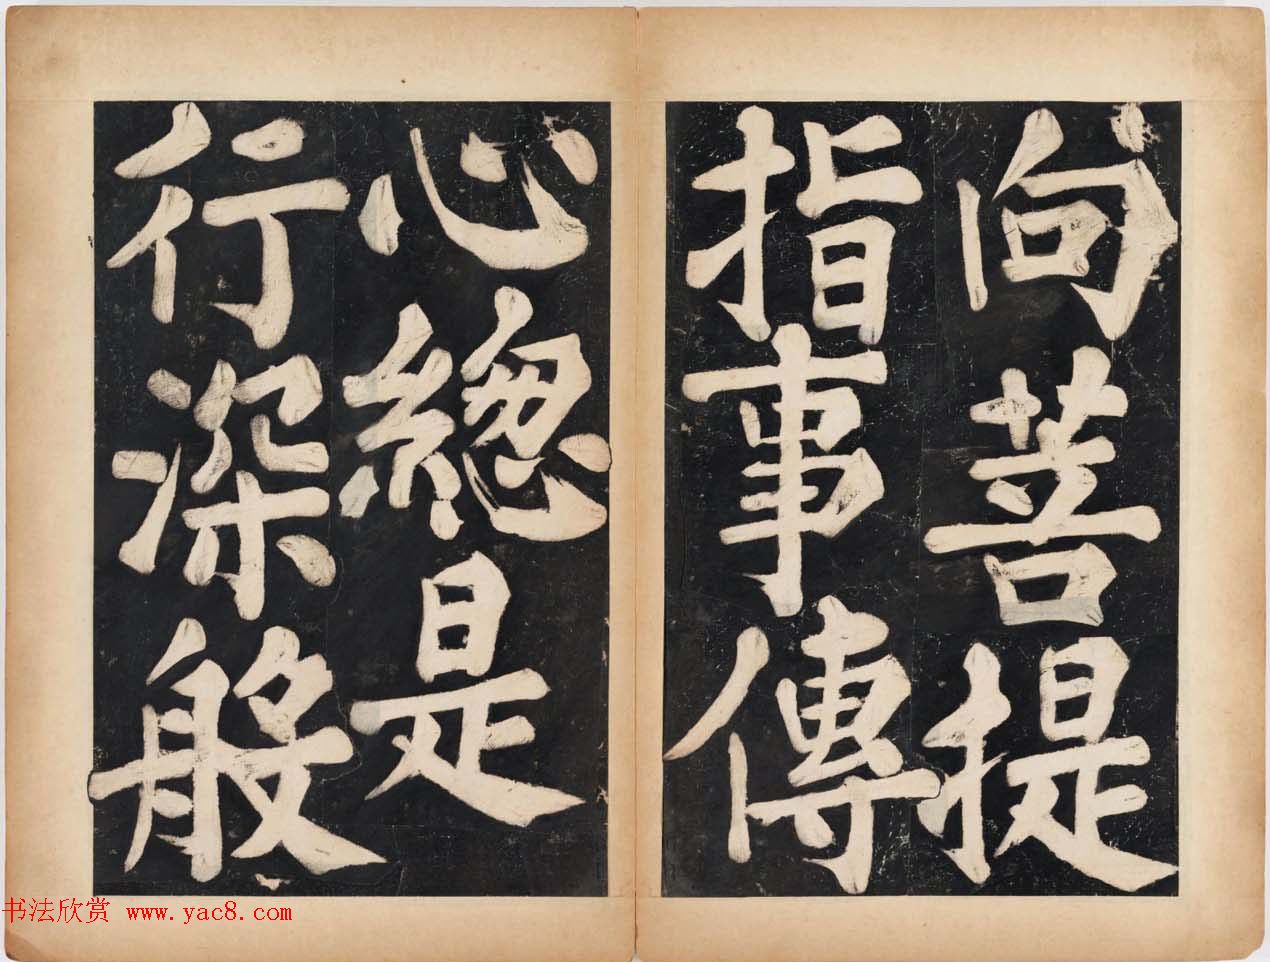 向菩提
指事傳
心總是
行深般
书法欣赏 www.yac8.com